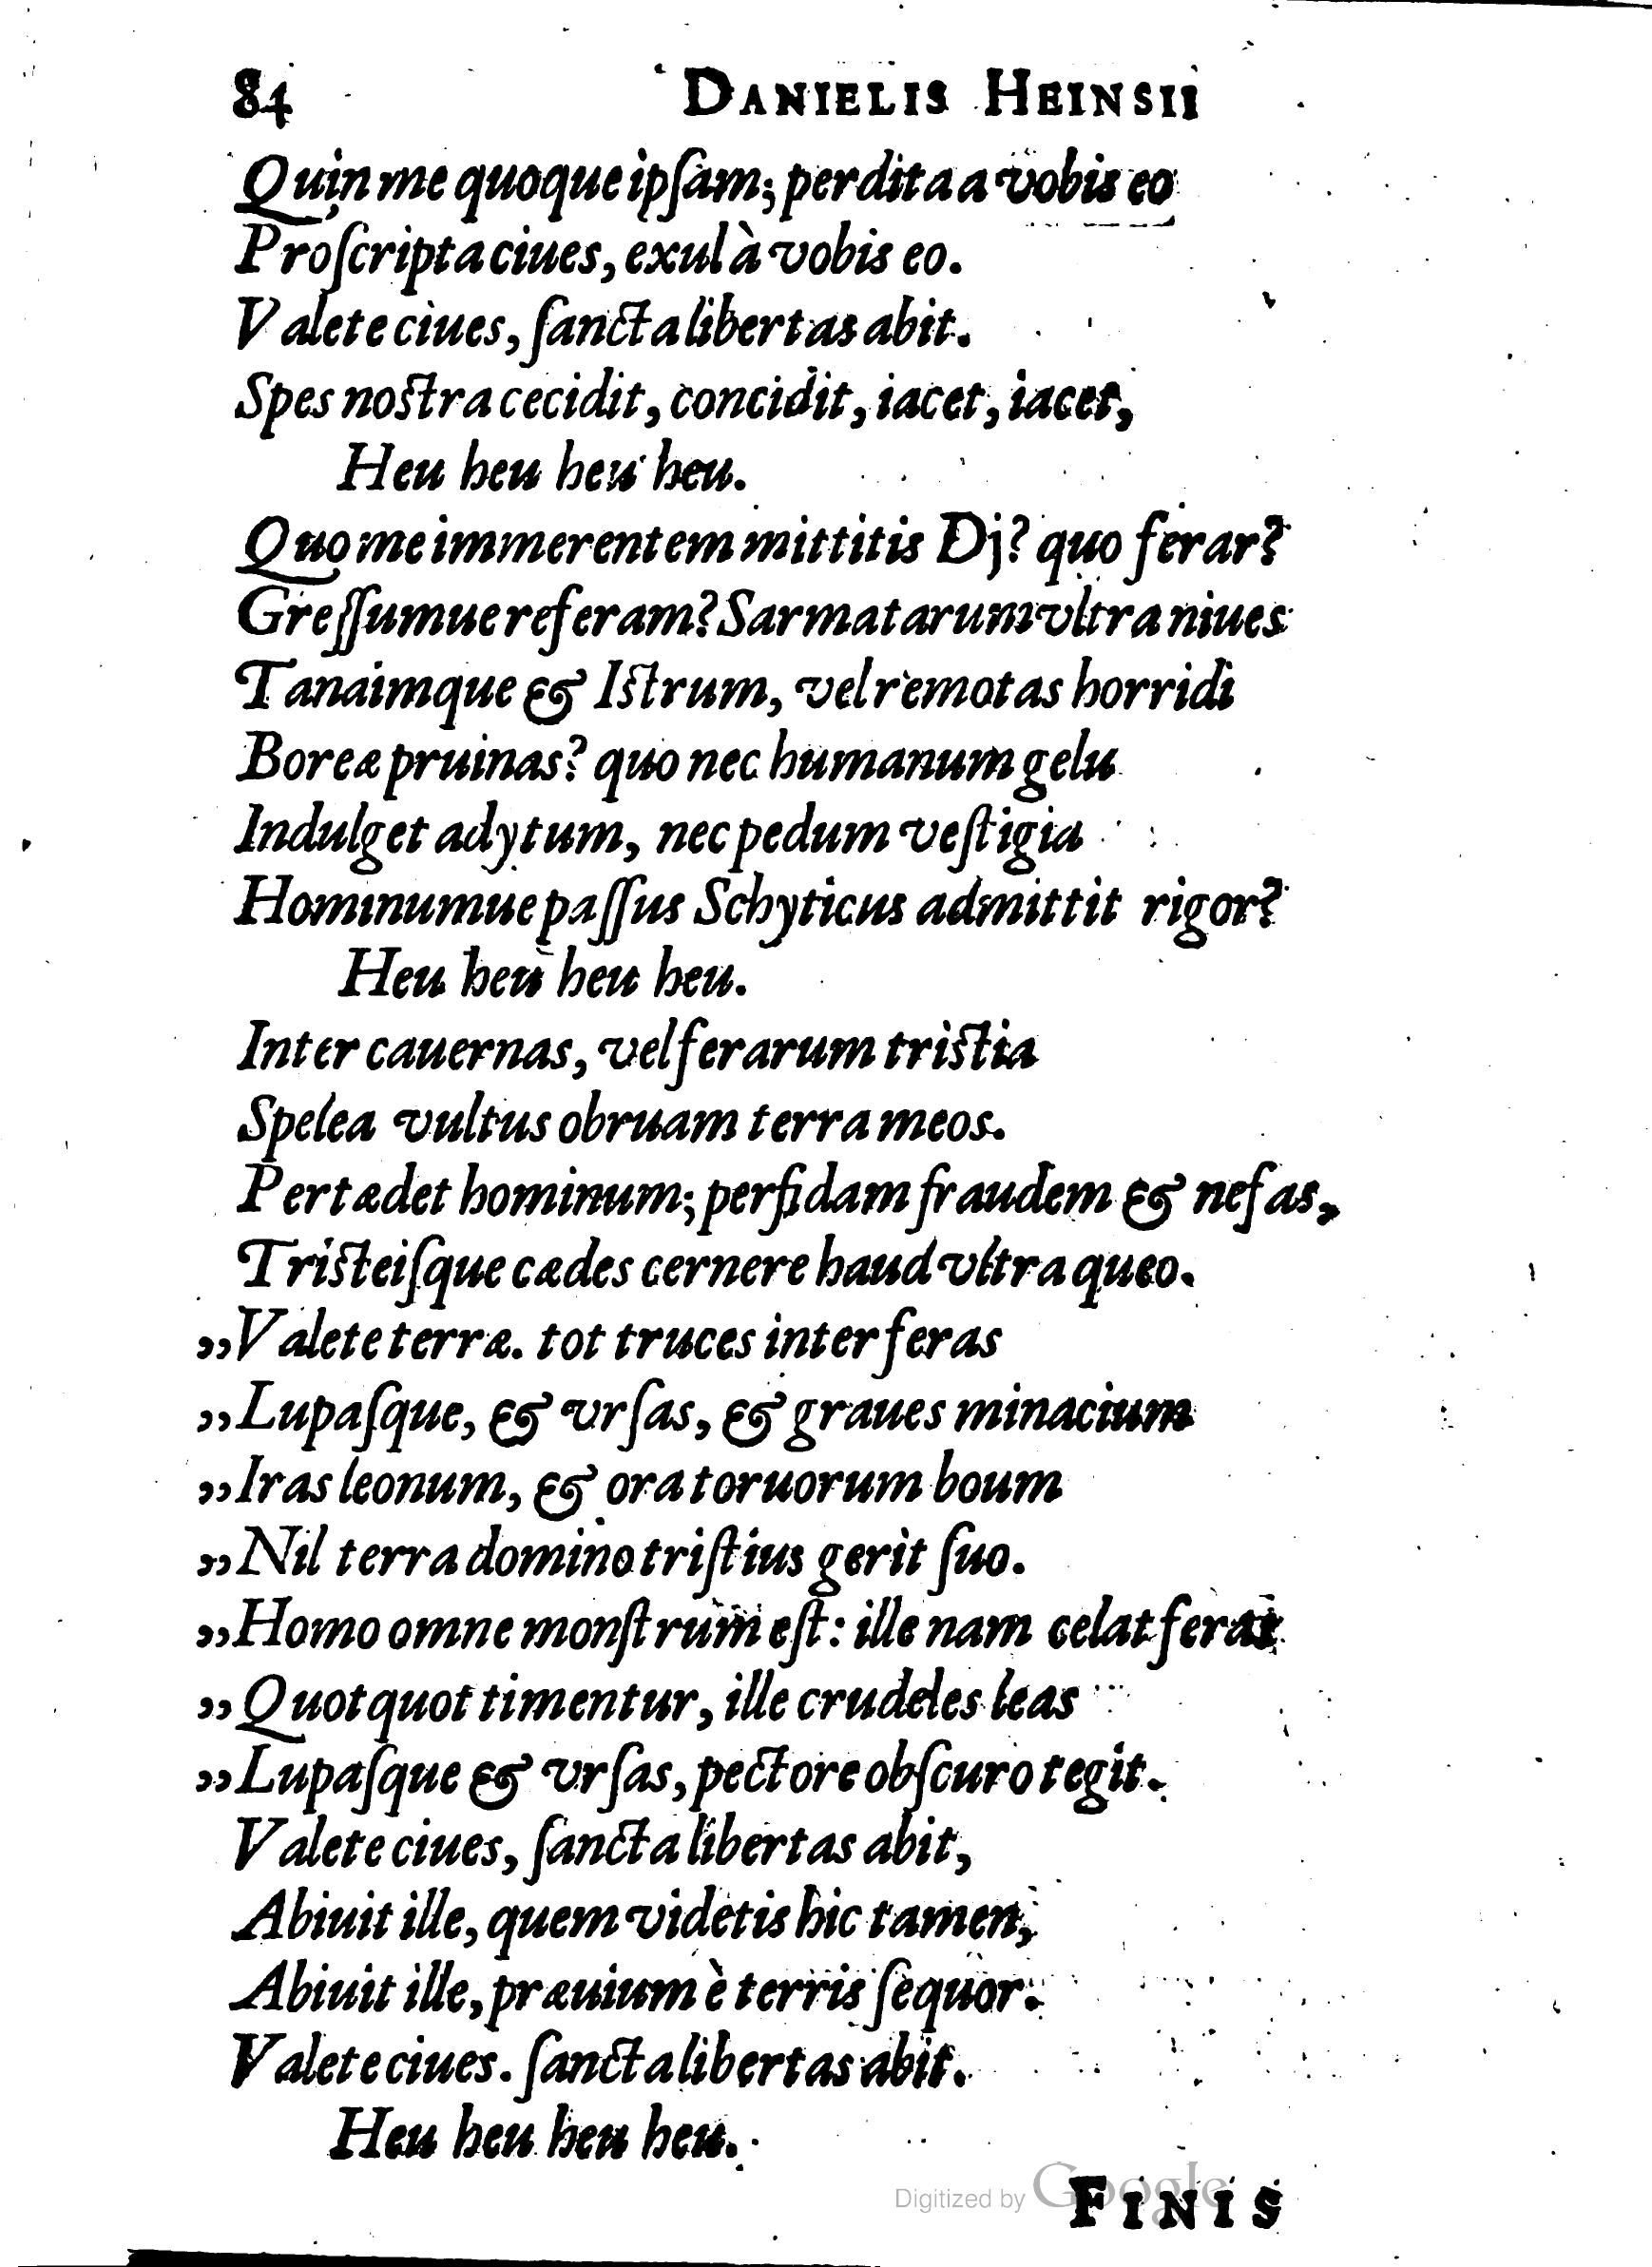 84 DANIELIS HEINSII
Quin me quoque ipſam; perdita a vobis eo
Proſcripta ciues, exul à vobis eo.
Valete ciues, ſancta libertas abit.
Spes nostra cecidit, concidit, iacet, iacet,
Heu heu heu heu.
Quo me immerentem mittitis Dj? quo ferar?
Greſſumue referam? Sarmatarum vltra niues
Tanaimque & Istrum, vel remotas horridi
Boreæ pruinas? quo nec humanum gelu
Indulget adytum, nec pedum veſtigia
Hominumue paſſus Schyticus admittit rigor?
Heu heu heu heu.
Inter cauernas, vel ferarum tristia
Spelea vultus obruam terra meos.
Pertædet hominum; perfidam fraudem & nefas,
Tristeiſque cædes cernere haud vltra queo.
„Valete terræ. tot truces inter feras
„Lupaſque, & vrſas, & graues minacium
„Iras leonum, & ora toruorum boum
„Nil terra domino triſtius gerit ſuo.
„Homo omne monſtrum eſt: ille nam celat feras
„Quotquot timentur, ille crudeles leas
„Lupaſque & vrſas, pectore obſcuro tegit.
Valete ciues, ſancta libertas abit,
Abiuit ille, quem videtis hic tamen,
Abiuit ille, præuium è terris ſequor.
Valete ciues. ſancta libertas abit.
Heu heu heu heu.
FINIS
Digitized by Google